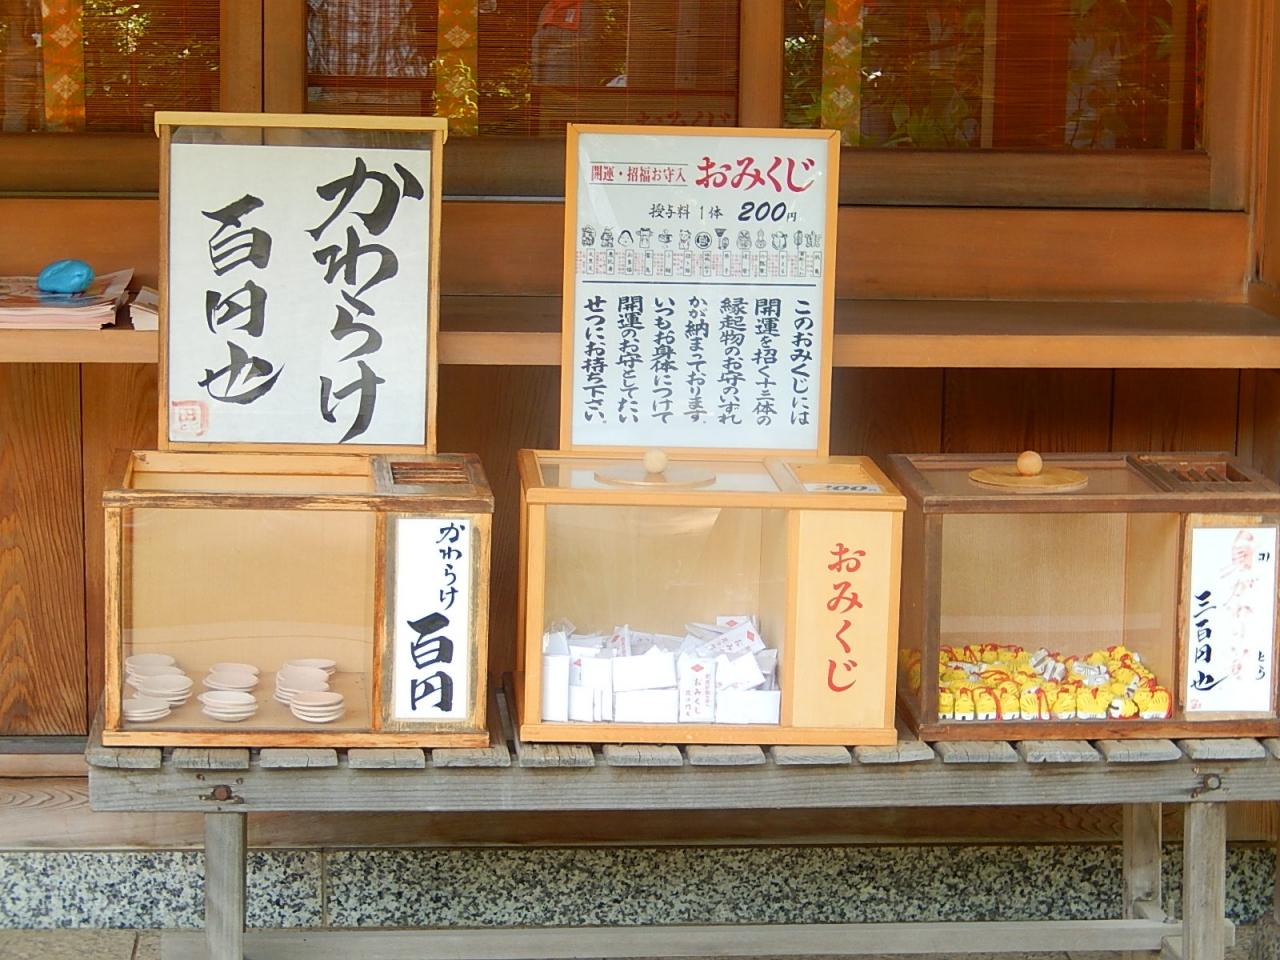 かわらけ
百円也
開運・招福お守入
おみくじ
授与料 1体 200円
このおみくじには
開運を招く十三体の
縁起物のお守のいずれ
かが納まっております。
いつもお身体につけて
開運のお守としてたい
せつにお持ち下さい。
かわらけ
百円
200円
おみくじ
身がわり
とら
三百円也